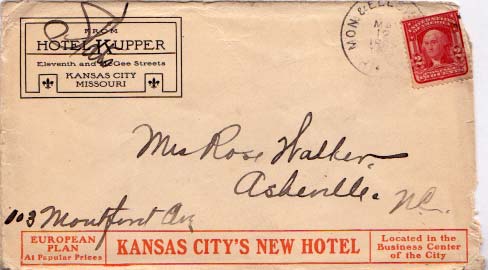 FROM
HOTEL KUPPER
Eleventh and McGee Streets
KANSAS CITY
MISSOURI
Mrs Rose Walker.
Asheville. N.C.
103 Montford Av
EUROPEAN
PLAN
At Popular Prices
KANSAS CITY'S NEW HOTEL
Located in the
Business Center
of the City